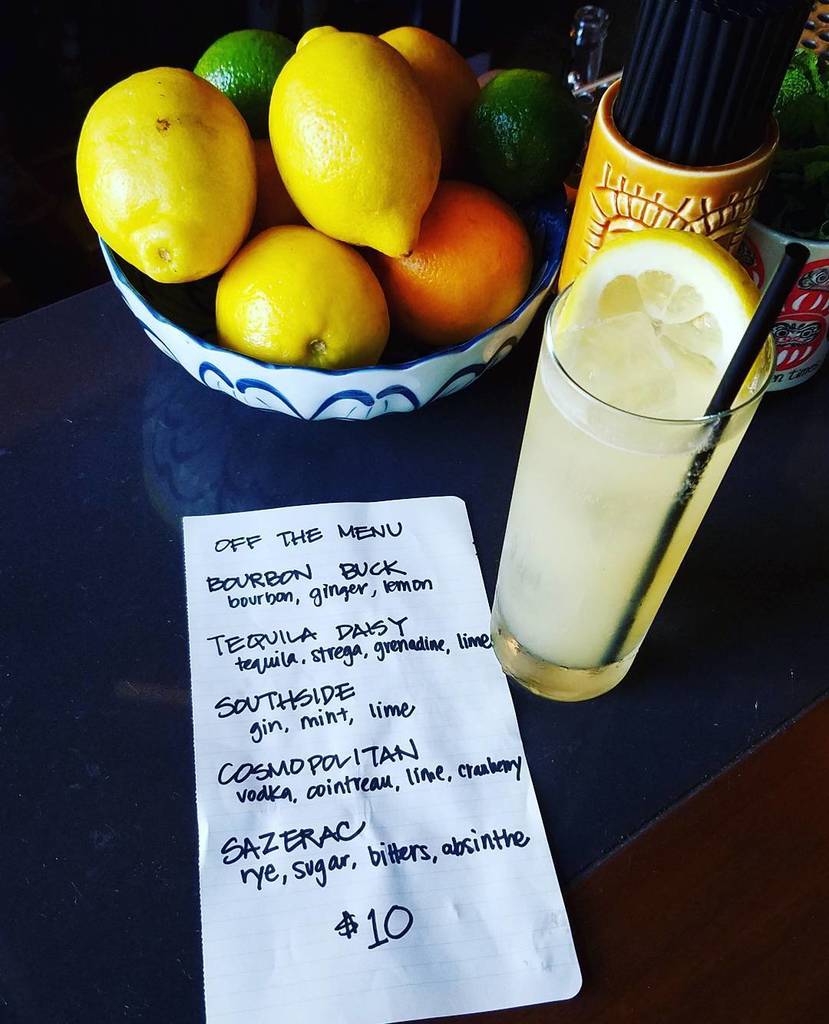 OFF THE MENU
BOURBON BUCK
bourbon, ginger, lemon
TEQUILA DAISY
tequila, strega, grenadine, lime
SOUTHSIDE
gin, mint, lime
COSMOPOLITAN
vodka, cointreau, lime, cranberry
SAZERAC
rye, sugar, bitters, absinthe
$10